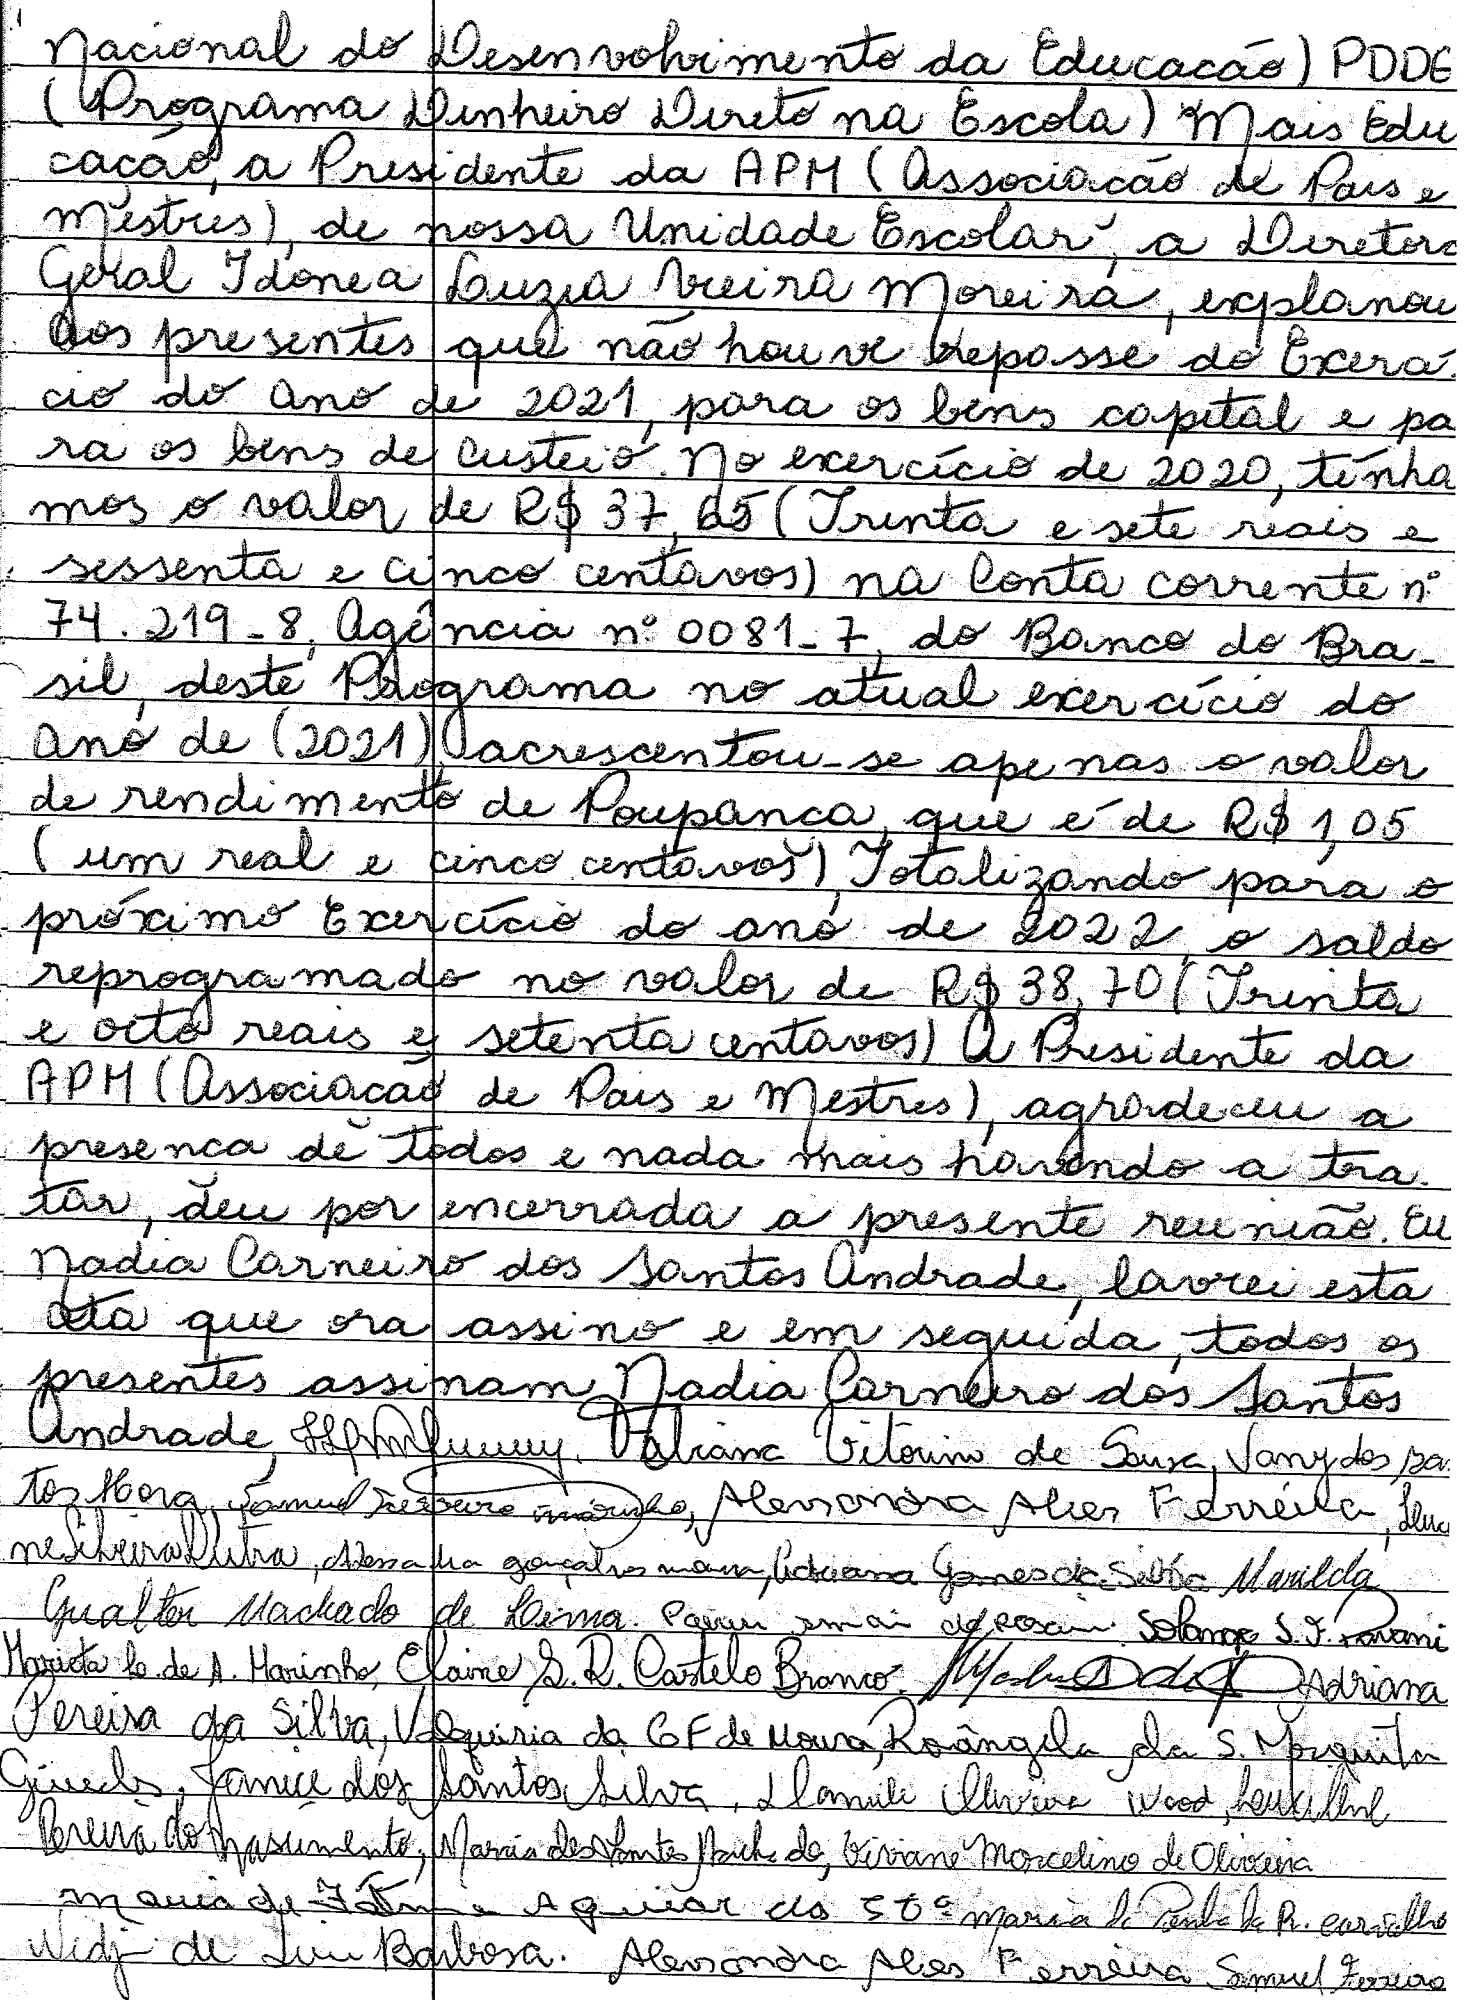 Nacional do Desenvolvimento da Educacão) PDDE
(Programa Dinheiro Direto na Escola) Mais Edu
cacão, a Presidente da APM (Associacão de Pais e
Mestres), de nossa Unidade Escolar, a Diretora
Geral Idonea Luzia Vieira Moreira, explanou
aos presentes que não houve repasse do Exercí-
cio do ano de 2021, para os bens capital e pa
ra os bens de custeio. No exercício de 2020, tínha
mos o valor de R$ 37,65 (Trinta e sete reais e
sessenta e cinco centavos) na Conta corrente nº
74.219-8, Agência nº 0081-7, do Banco do Bra-
sil, deste Programa no atual exercício do
ano de (2021) acrescentou-se apenas o valor
de rendimento de Poupanca, que é de R$ 1,05
(um real e cinco centavos), Totalizando para o
próximo Exercício do ano de 2022, o saldo
reprogramado no valor de R$ 38,70 (Trinta
e oito reais e setenta centavos) A Presidente da
APM (Associacão de Pais e Mestres), agradeceu a
presenca de todos e nada mais havendo a tra-
tar, deu por encerrada a presente reunião. Eu
Nadia Carneiro dos Santos Andrade, lavrei esta
ata que ora assino e em seguida, todos os
presentes assinam, Nadia Carneiro dos Santos
Andrade, Fabiana Vitorino de Sousa, Vany dos Sa
tos Samuel Ferreira Marinho, Alessandra Alves Ferreira,
ne Silveira Dutra, Alessandra Gonçalves Adriana Gomes da Silva Marilda
Gualter Machado de Lima. Solange S. F. Pavani
Marieta C. de A. Marinho, Elaine S. R. Castelo Branco. Adriana
Pereira da Silva, Valquiria da G F de Moura, Rosângela da S. Mesquita
Guedes, Janice dos Santos Silva, Oliveira Wood,
Pereira do Nascimento, Marcia dos Santos Machado, Viviane Marcelino de Oliveira
Maria de Fátima Aguiar da Stª Maria da Penha da R. Carvalho
de Barbosa. Alessandra Alves Ferreira Samuel Ferreira